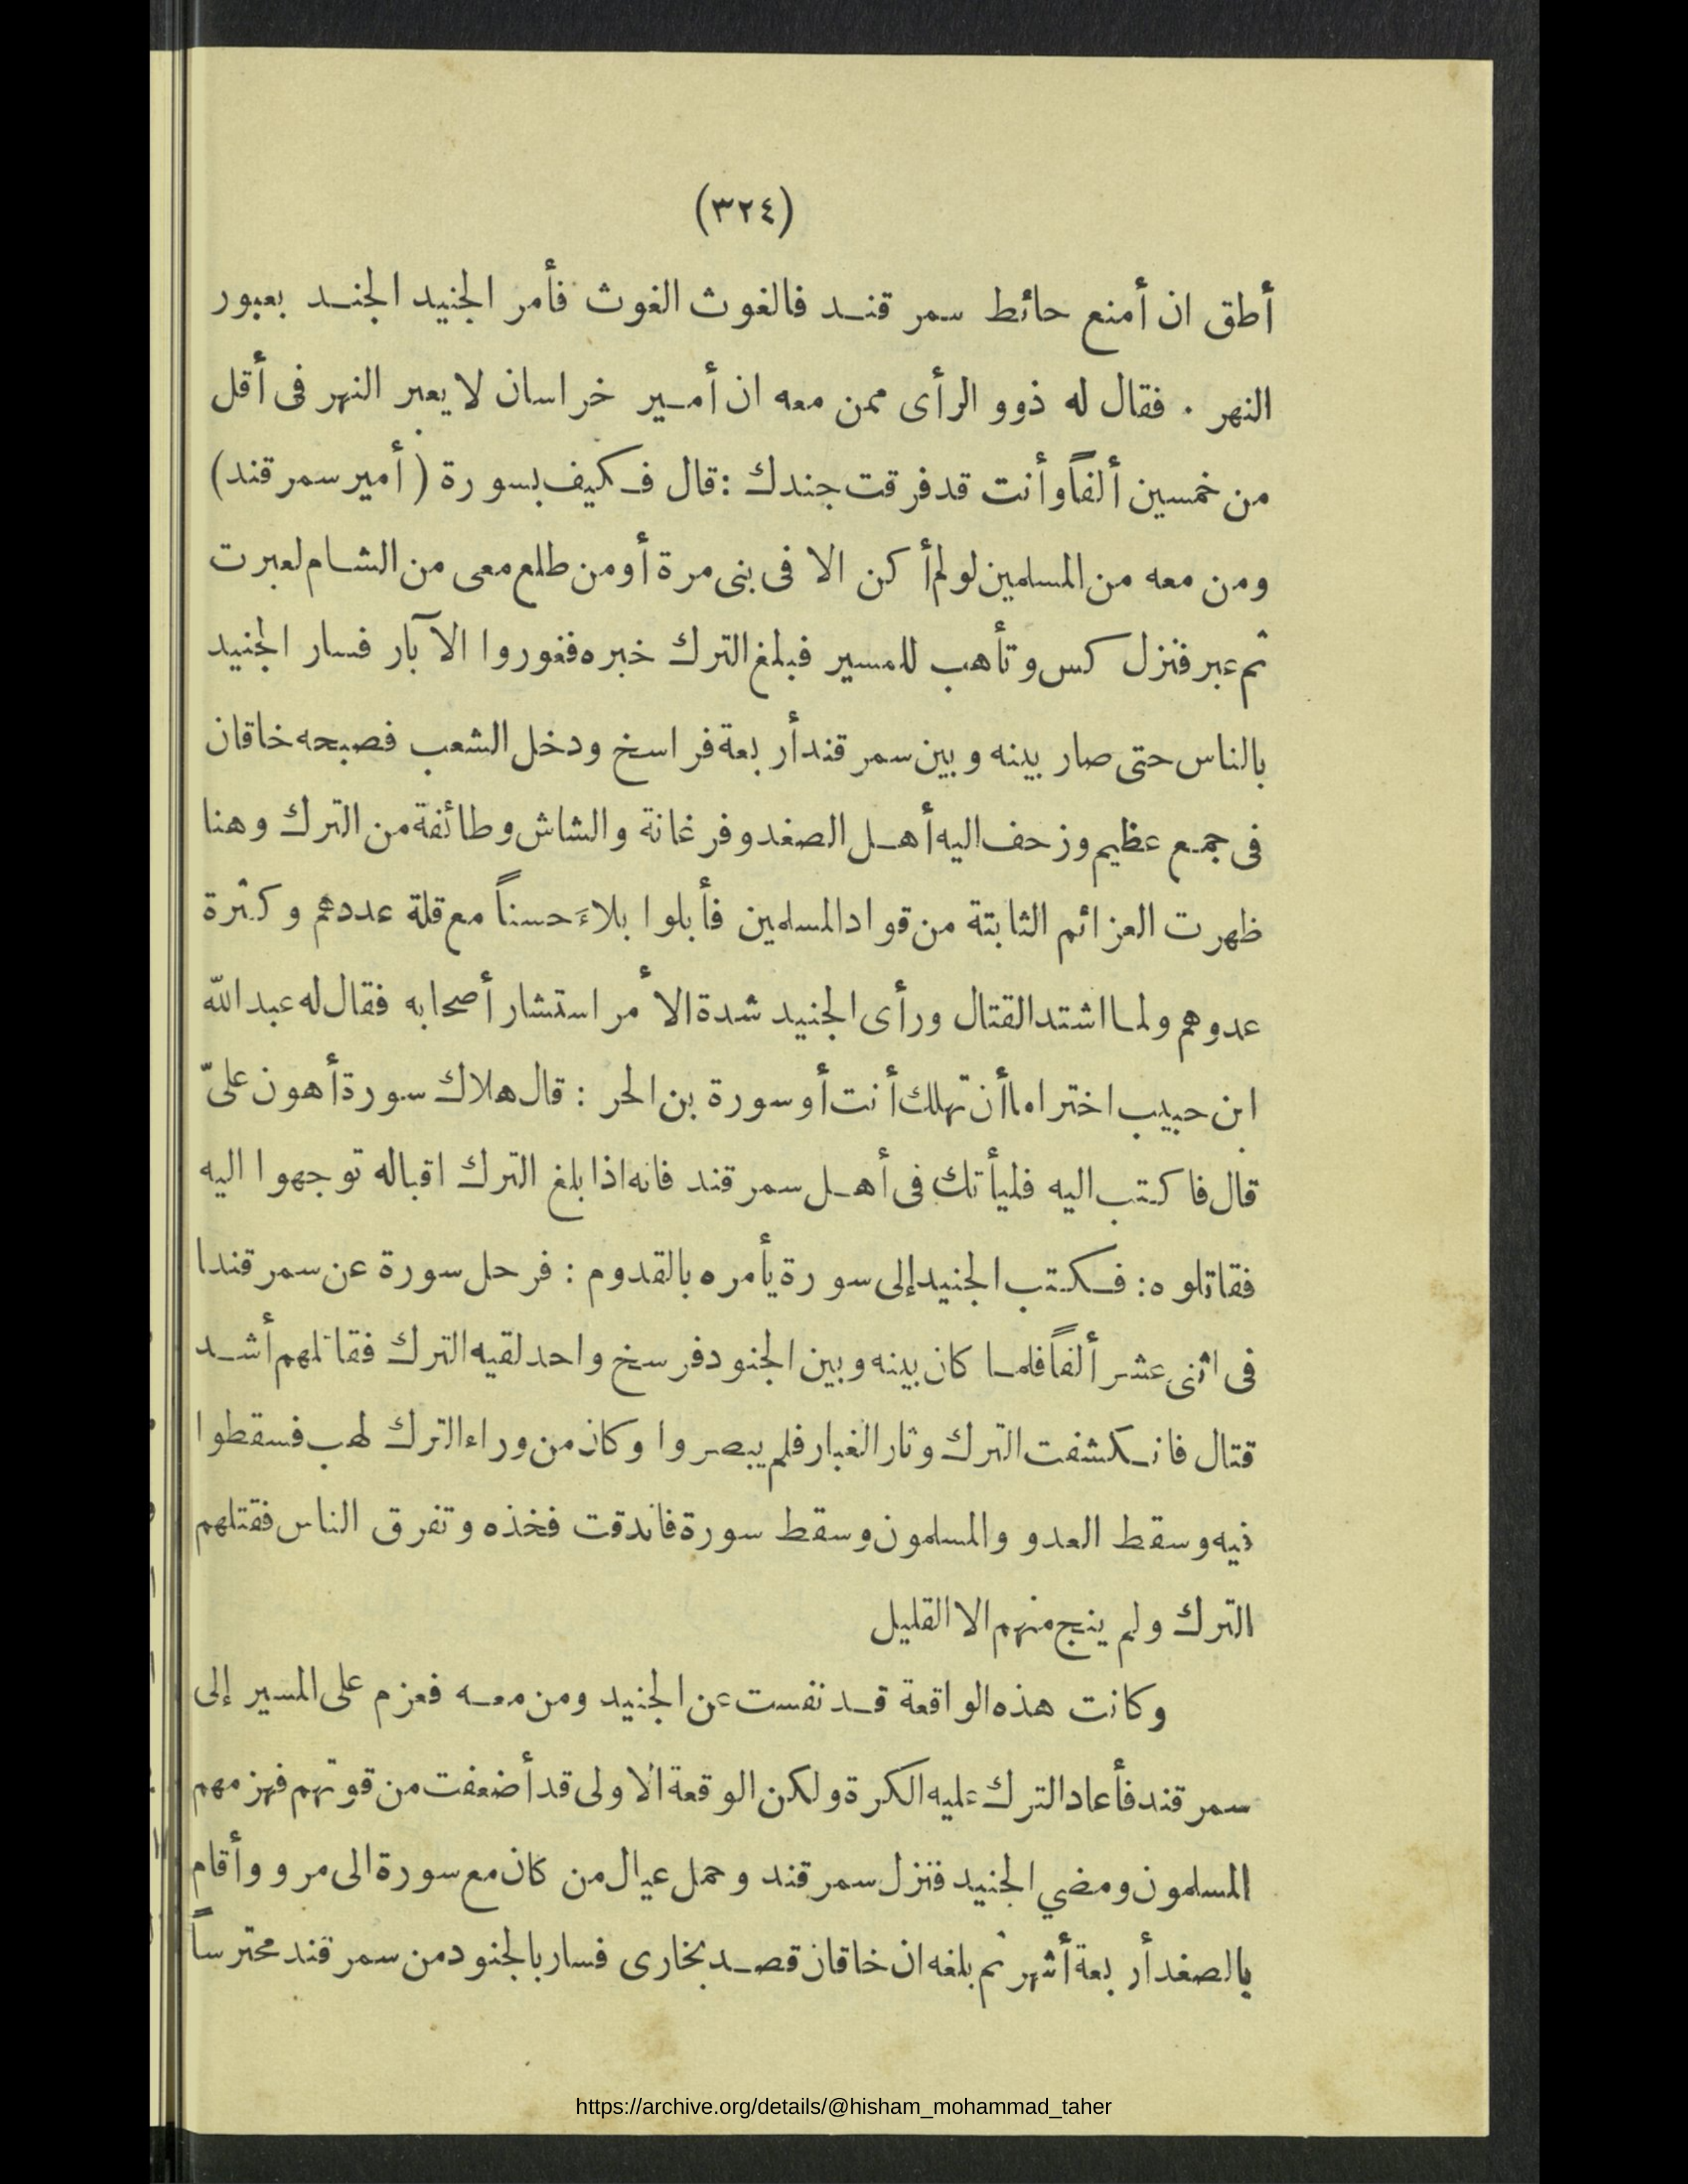 (٣٢٤)
أطق ان أمنع حائط سمر قند فالغوث الغوث فأمر الجنيد الجند بعبور
النهر . فقال له ذوو الرأى ممن معه ان أمير خراسان لا يعبر النهر فى أقل
من خمسين ألفاً وأنت قد فرقت جندك : قال فكيف بسورة (أمير سمرقند)
ومن معه من المسلمين لو لم أكن الا فى بنى مرة أو من طلع معى من الشام لعبرت
ثم عبر فنزل كس وتأهب للمسير فبلغ الترك خبره فغوروا الآبار فسار الجنيد
بالناس حتى صار بينه وبين سمر قند أربعة فراسخ ودخل الشعب فصبحه خاقان
فى جمع عظيم وزحف اليه أهل الصغد وفرغانة والشاش وطائفة من الترك وهنا
ظهرت العزائم الثابتة من قواد المسلمين فأبلوا بلاءَ حسناً مع قلة عددهم وكثرة
عدوهم ولما اشتد القتال ورأى الجنيد شدة الأمر استشار أصحابه فقال له عبد الله
ابن حبيب اختر اما أن تهلك أنت أو سورة بن الحر : قال هلاك سورة أهون علىّ
قال فاكتب اليه فليأتك فى أهل سمر قند فانه اذا بلغ الترك اقباله توجهوا اليه
فقاتلوه : فكتب الجنيد إلى سورة يأمره بالقدوم : فرحل سورة عن سمر قندا
فى اثنى عشر ألفاً فلما كان بينه وبين الجنود فرسخ واحد لقيه الترك فقاتلهم أشد
قتال فانكشفت الترك وثار الغبار فلم يبصروا وكان من وراء الترك لهب فسقطوا
فيه وسقط العدو والمسلمون وسقط سورة فاندقت فخذه وتفرق الناس فقتلهم
الترك ولم ينج منهم الا القليل
وكانت هذه الواقعة قد نفست عن الجنيد ومن معه فعزم على المسير إلى
سمر قند فأعاد الترك عليه الكرة ولكن الوقعة الاولى قد أضعفت من قوتهم فهزمهم
المسلمون ومضي الجنيد فنزل سمر قند وحمل عيال من كان مع سورة الى مرو وأقام
بالصغد أربعة أشهر ثم بلغه ان خاقان قصد بخارى فسار بالجنود من سمر قند محترساً
https://archive.org/details/@hisham_mohammad_taher